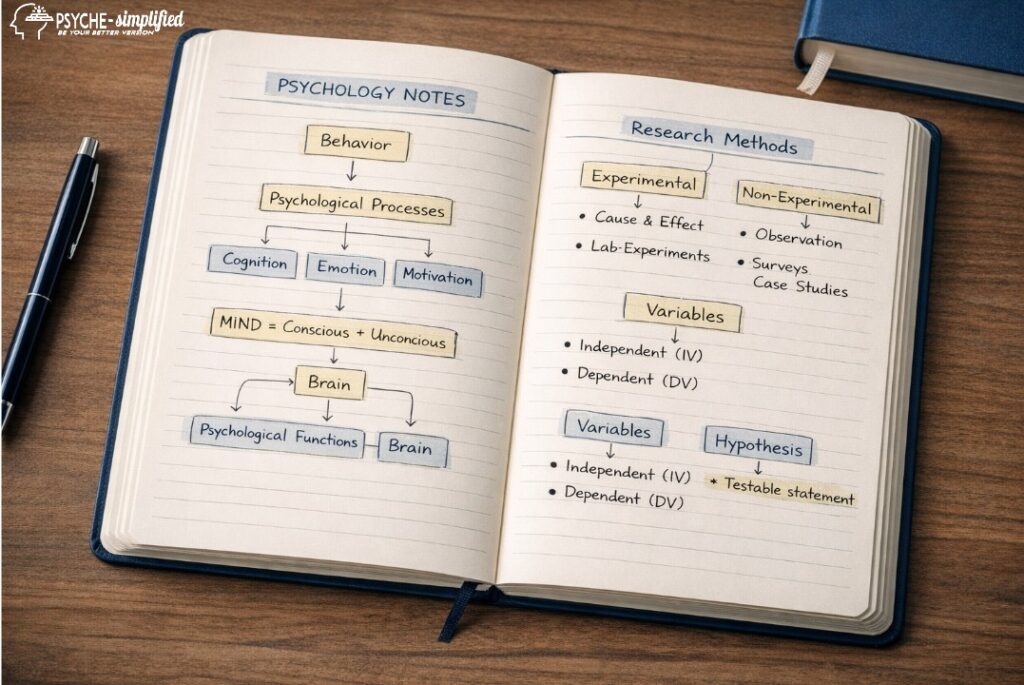 PSYCHE-simplified
BE YOUR BETTER VERSION
PSYCHOLOGY NOTES
Behavior
Psychological Processes
Cognition
Emotion
Motivation
MiND = Conscious + Unconcious
Brain
Psychological Functions
Brain
Research Methods
Experimental
• Cause & Effect
• Lab-Experiments
Non-Experimental
• Observation
• Surveys
Case Studies
Variables
• Independent (IV)
• Dependent (DV)
Variables
• Independent (IV)
• Dependent (DV)
Hypothesis
* Testable statement